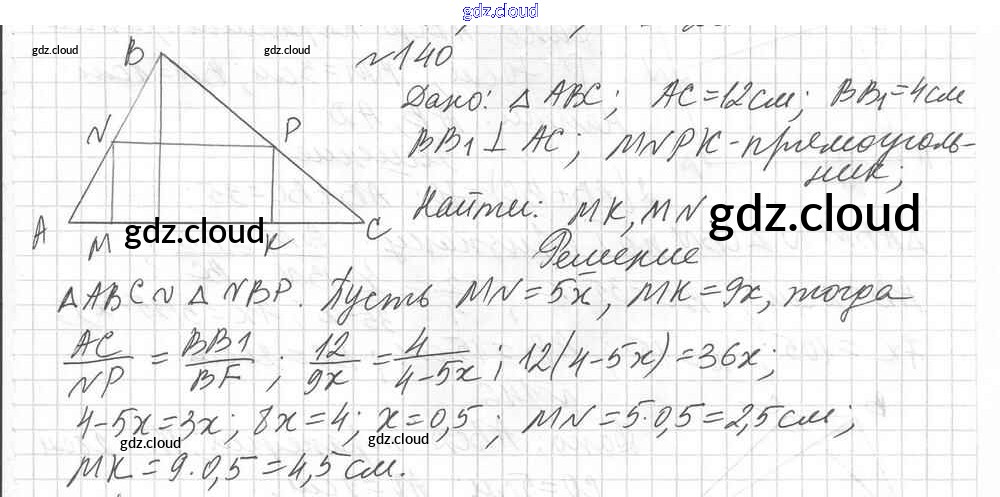 gdz.cloud
gdz.cloud
gdz.cloud
№140
B
Дано: △ ABC; AC=12см; BB1=4см
N
P
BB1 ⊥ AC; MNPK-прямоуголь-
ник;
Найти: MK, MN
gdz.cloud
A
M
gdz.cloud
K
C
Решение
△ABC ~ △NBP. Пусть MN=5x, MK=9x, тогда
AC/NP = BB1/BF; 12/9x = 4/4-5x; 12(4-5x)=36x;
4-5x=3x; 8x=4; x=0,5; MN=5·0,5=2,5см;
gdz.cloud
gdz.cloud
MK=9·0,5=4,5см.